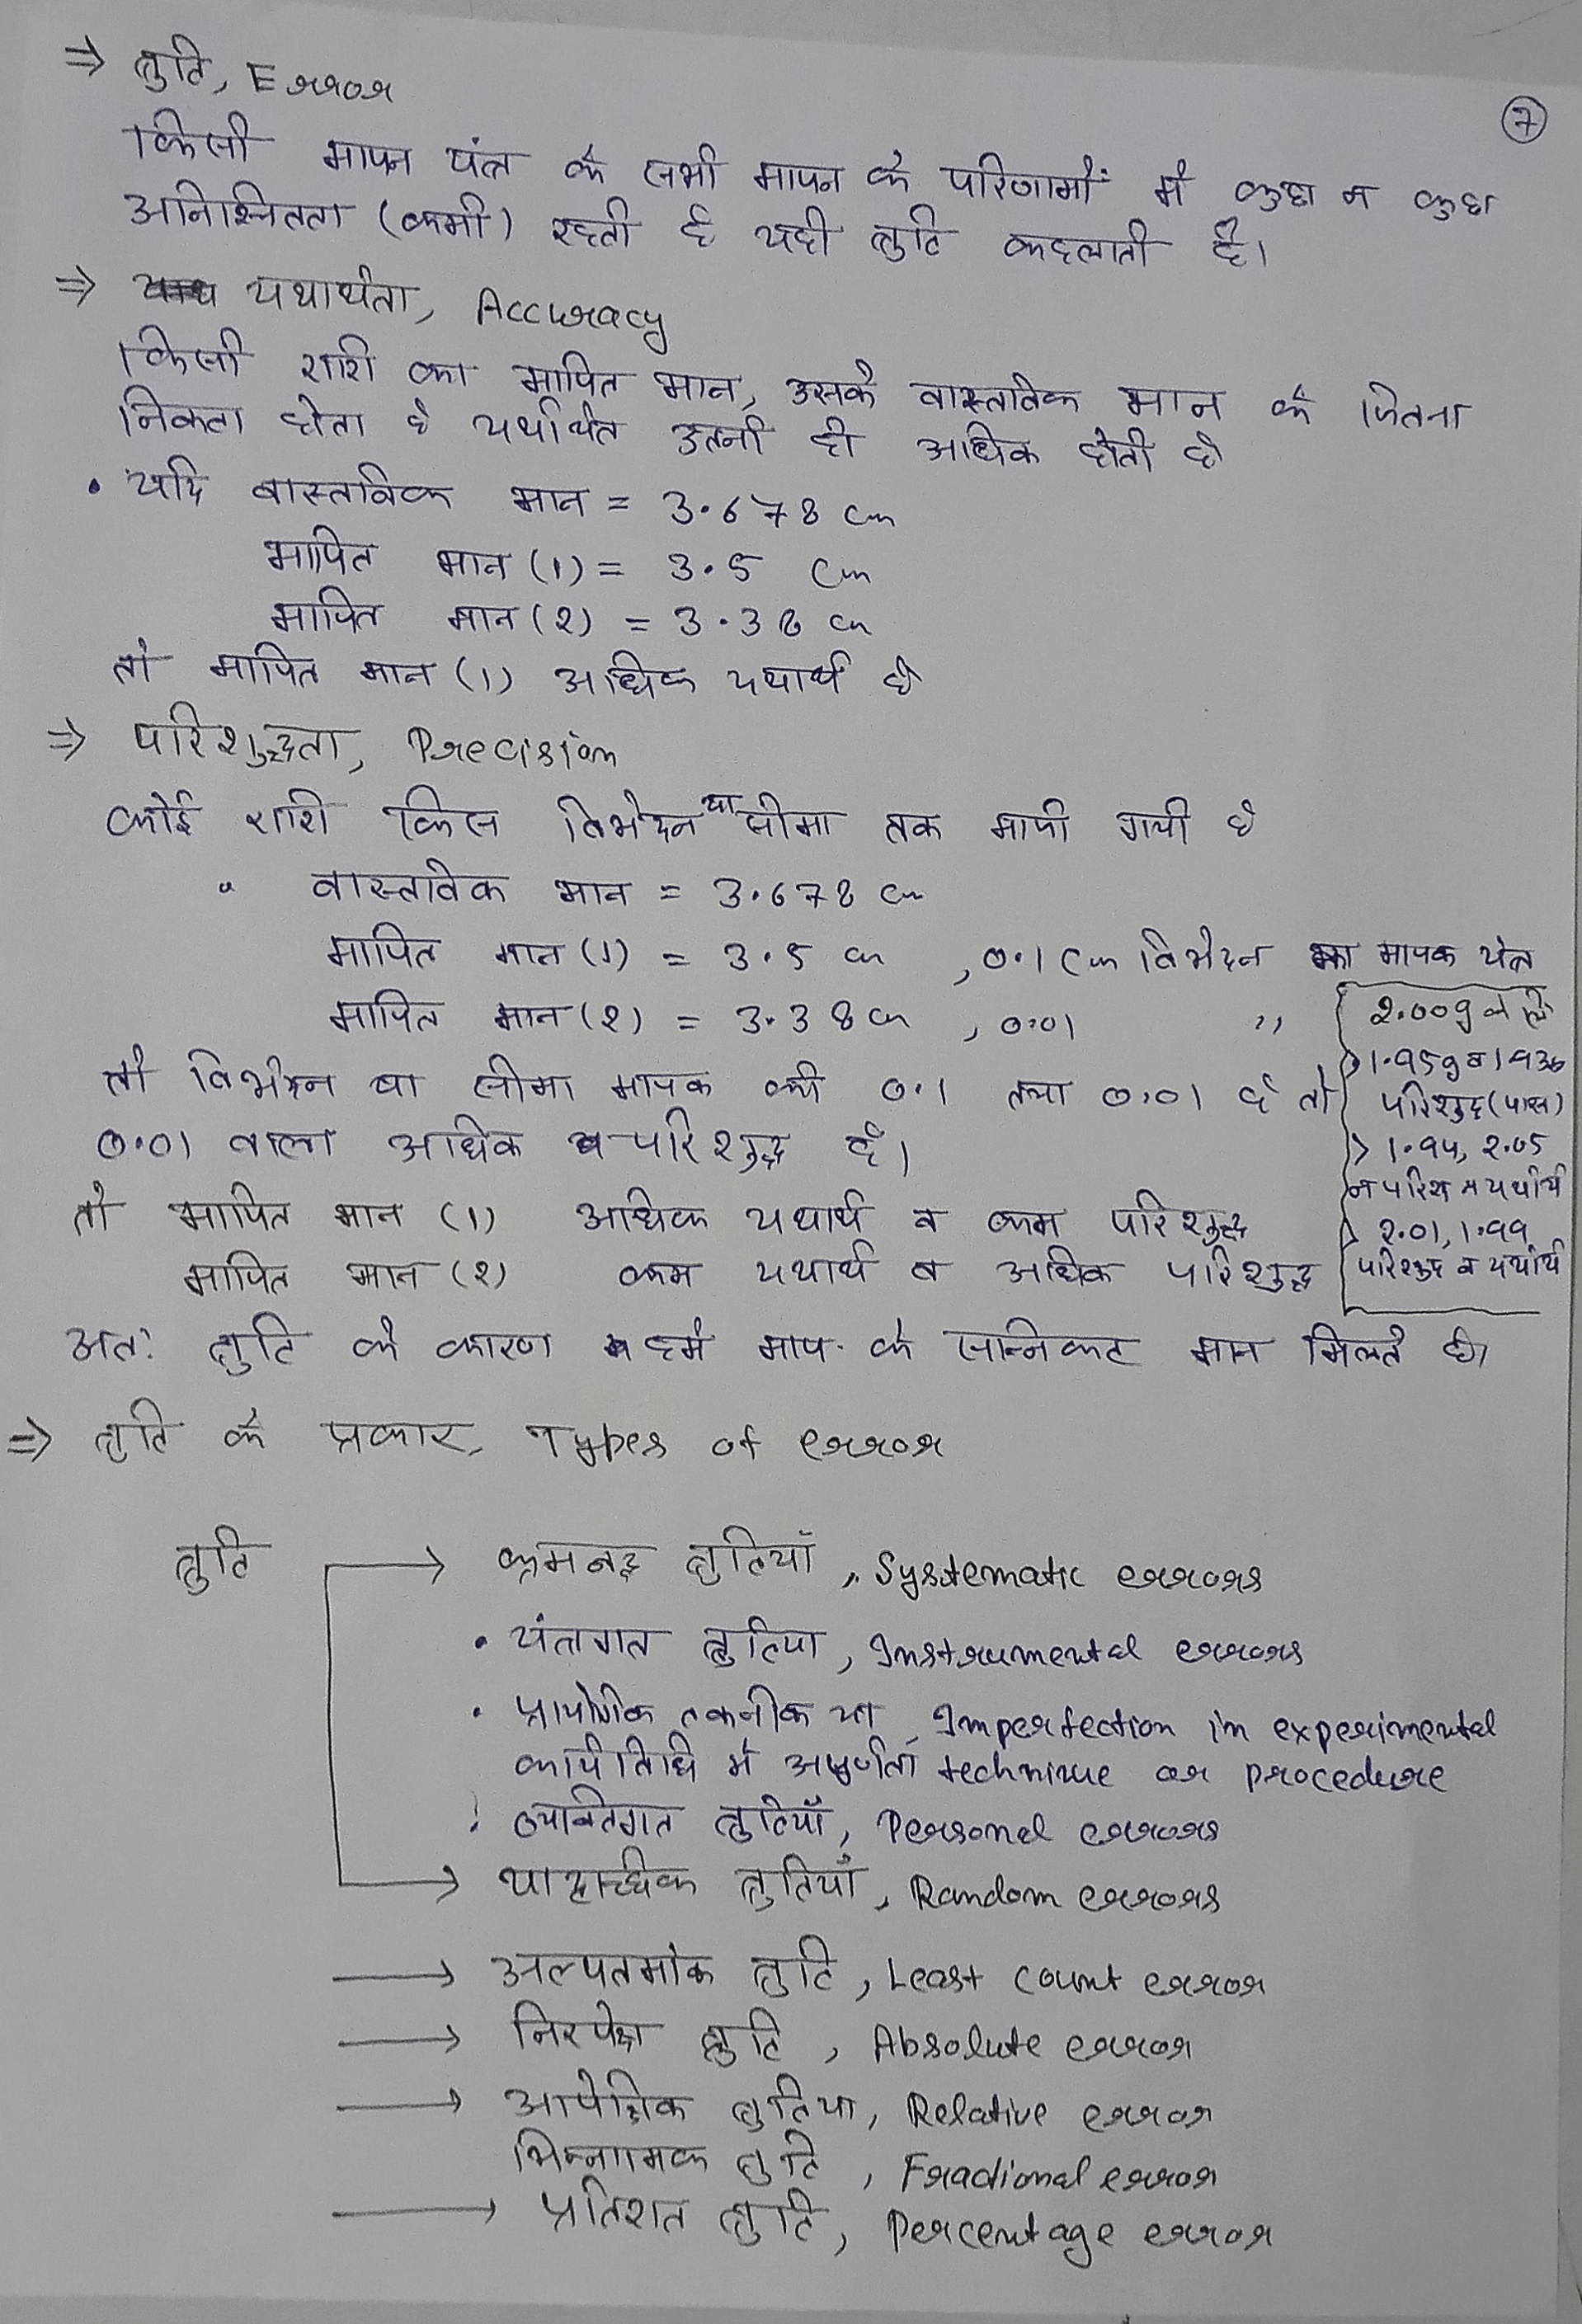 ⇒ त्रुटि, Error
7
किसी मापन यंत्र के सभी मापन के परिणामों में कुछ न कुछ
अनिश्चितता (कमी) रहती है यही त्रुटि कहलाती है।
⇒ यथार्थता, Accuracy
किसी राशि का मापित मान, उसके वास्तविक मान के जितना
निकता होता है यर्थाथत उतनी ही अधिक होती है
• यदि वास्तविक मान = 3.678 cm
मापित मान (1) = 3.5 cm
मापित मान (2) = 3.38 cm
तो मापित मान (1) अधिक यथार्थ है
⇒ परिशुद्धता, Precision
कोई राशि किस विभेदन या सीमा तक मापी गयी है
• वास्तविक मान = 3.678 cm
मापित मान (1) = 3.5 cm , 0.1 cm विभेदन का मापक यंत्र
मापित मान (2) = 3.38 cm , 0.01 ,,
तो विभेदन वा सीमा मापक की 0.1 तथा 0.01 है तो
0.01 वाला अधिक परिशुद्ध है।
तो मापित मान (1) अधिक यथार्थ व कम परिशुद्ध
मापित मान (2) कम यथार्थ व अधिक परिशुद्ध
2.00g
1.95g व
परिशुद्ध (पास)
> 1.94, 2.05
न परिशु न यर्थाथ
> 2.01, 1.99
परिशुद्ध व यर्थाथ
अतः त्रुटि के कारण हमे माप के सन्निकट मान मिलते है।
⇒ त्रुटि के प्रकार, Types of error
त्रुटि → क्रमबद्ध त्रुटियाँ, Systematic errors
• यंत्रगत त्रुटिया, Instrumental errors
• प्रायोगिक तकनीक या, Imperfection in experimental
कार्यविधि में अपूर्णता technique or procedure
• व्यक्तिगत त्रुटियाँ, Personal errors
→ यादृच्छिक त्रुटियाँ, Random errors
→ अल्पतमांक त्रुटि, Least count error
→ निरपेक्ष त्रुटि, Absolute error
→ आपेक्षिक त्रुटिया, Relative error
भिन्नात्मक त्रुटि, Fractional error
→ प्रतिशत त्रुटि, Percentage error